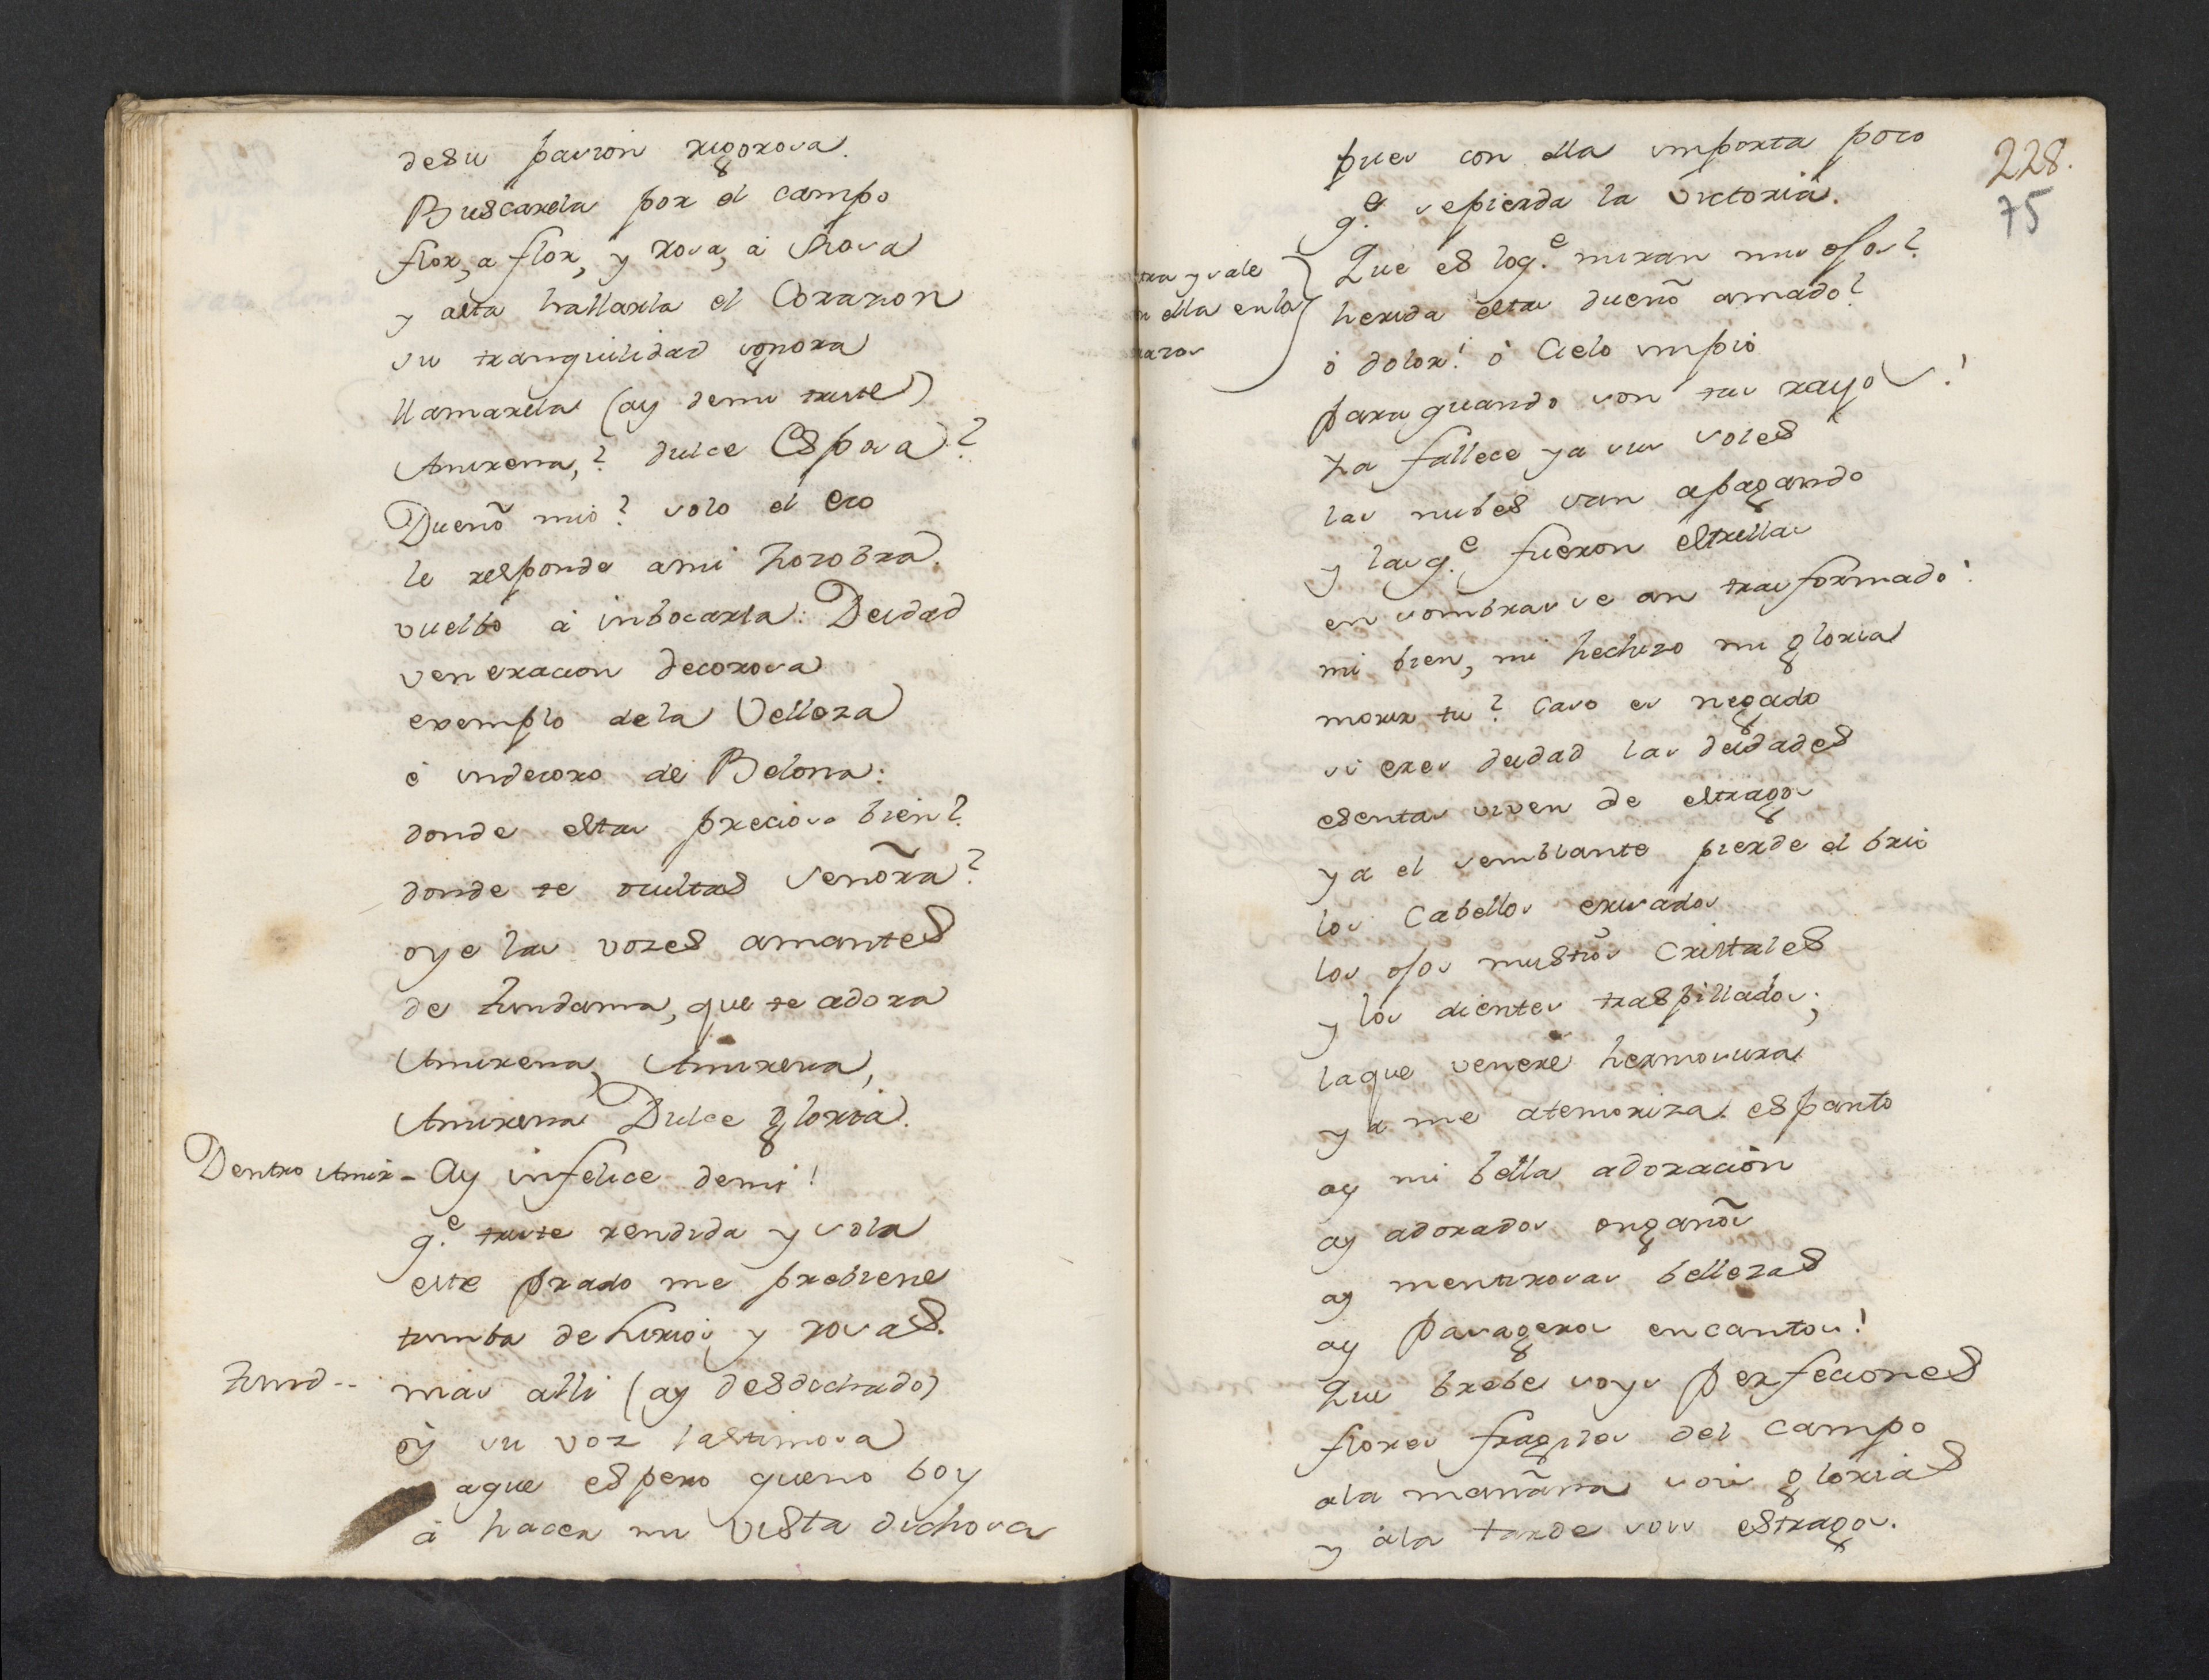 desu pasion rigorosa.
Buscarela por el campo
flor, a flor, y rosa, à Rosa
y asta hallarla el Corazon
su tranquilidad ygnora
llamarela (ay demi triste)
Amirena,? dulce Esposa?
Dueño mio? solo el eco
le responde ami zozobra.
vuelbo à inbocarla: Deidad
veneracion decorosa
exemplo de la Velleza
è indecoro de Belona:
donde estas precioso bien?
donde te ocultas Señora?
oye las vozes amantes
de Zundama, que te adora
Amirena, Amirena,
Amirena Dulce gloria.
Dentro Amir- Ay infelice demi!
q.e triste rendida y sola
este prado me prebiene
tumba de lirios, y rosas.
Zund-- mas alli (ay desdichado)
oỳ su voz lastimosa
aque espero queno boy
à hacer mi vista dichosa
228.
75
pues con ella importa poco
q.e sepierda la victoria.
tra y sale
ella en los
razos
Que es loq.e miran mis ojos?
herida estas dueño amado?
ò dolor! ò Cielo impio
para quando son tus rayos!
Ya fallece ya sus soles
las nubes van apagando
y las q.e fueron estrellas
en sombras se an trasformado!
mi bien, mi hechizo mi gloria
morir tu? Caso es negado
si eres deidad las deidades
esentas viven de estragos
ya el semblante pierde el brio
los Cabellos erisados
los ojos mustios Cristales
y los dientes traspillados;
laque venerè hermosura
ya me atemoriza espanto
ay mi bella adoracion
ay adorados engaños
ay mentirosas bellezas
ay pasageros encantos!
Que brebes soys perfeciones
flores fragiles del campo
ala mañana sois glorias
y àla tarde sois estragos.